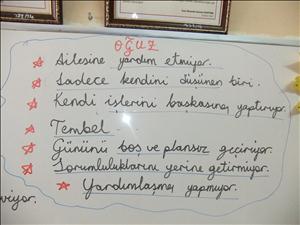 OĞUZ
Ailesine yardım etmiyor.
Sadece kendini düşünen biri.
Kendi işlerini başkasına yaptırıyor.
Tembel
Gününü boş ve plansız geçiriyor.
Sorumluluklarını yerine getirmiyor.
Yardımlaşma yapmıyor.